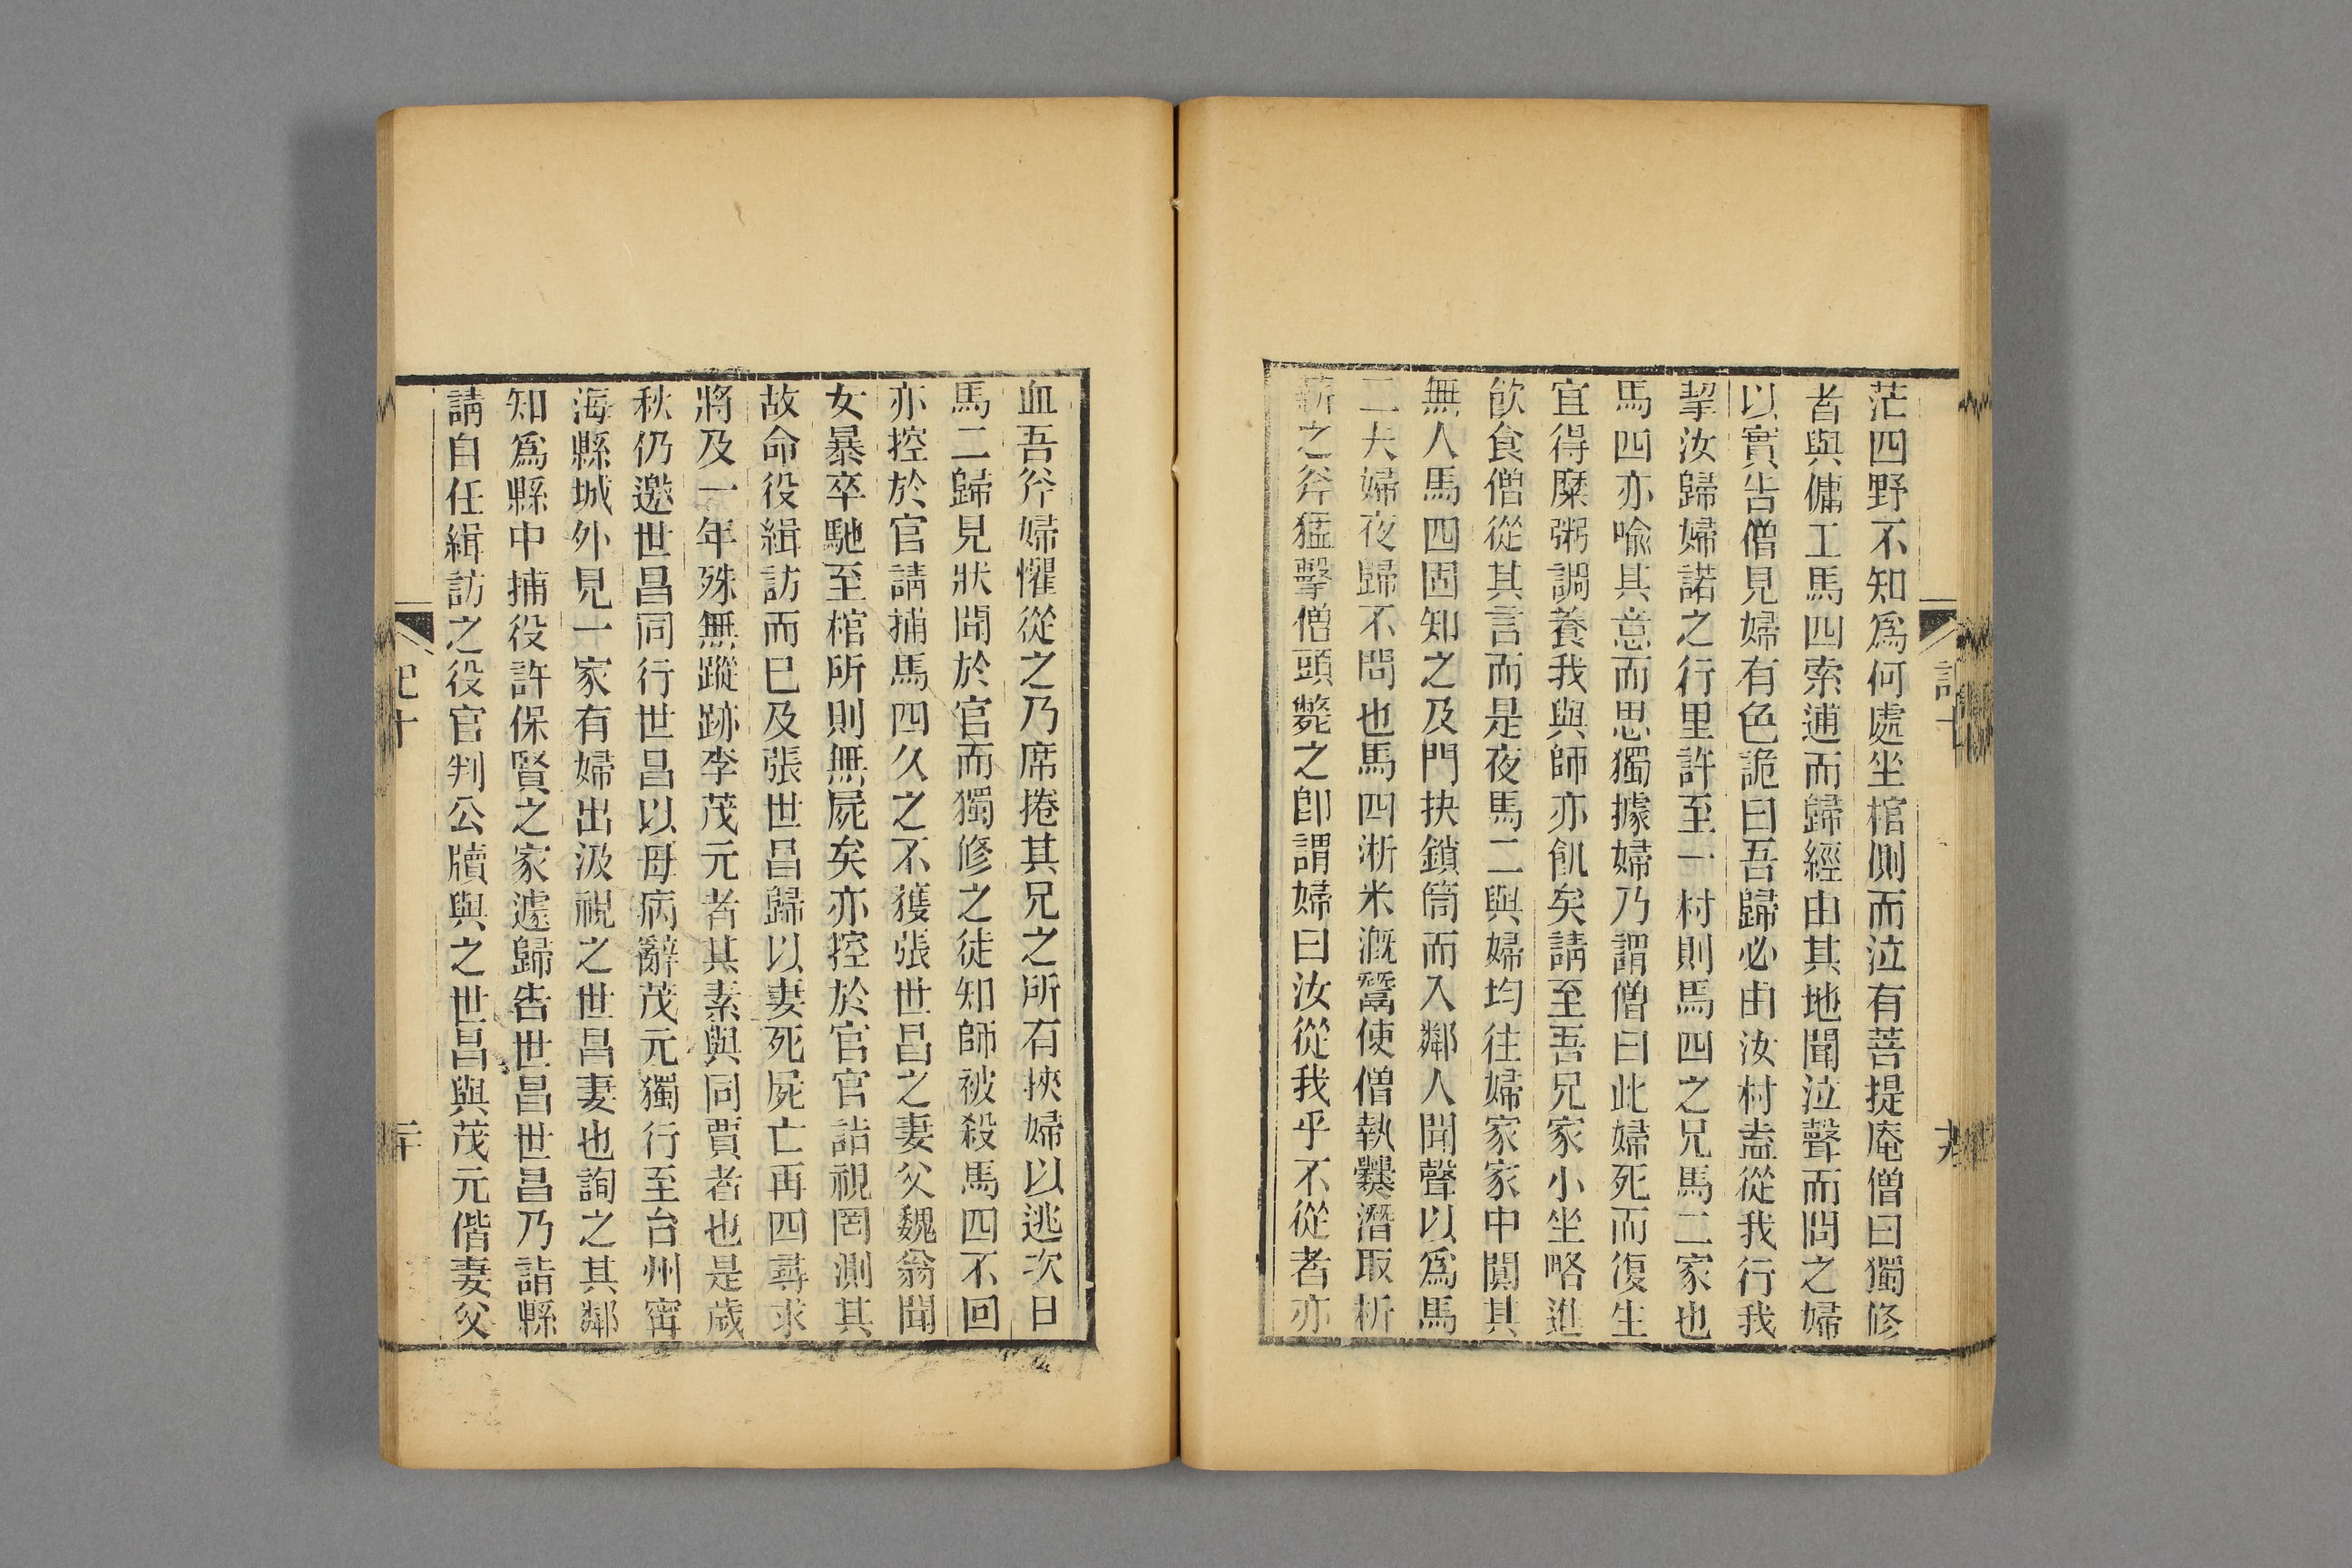 茫四野不知爲何處坐棺側而泣有菩提庵僧曰獨修
者與傭工馬四索逋而歸經由其地聞泣聲而問之婦
以實告僧見婦有色詭曰吾歸必由汝村盍從我行我
挈汝歸婦諾之行里許至一村則馬四之兄馬二家也
馬四亦喻其意而思獨據婦乃謂僧曰此婦死而復生
宜得糜粥調養我與師亦飢矣請至吾兄家小坐略進
飲食僧從其言而是夜馬二與婦均往婦家家中闃其
無人馬四固知之及門抉鎖筩而入鄰人聞聲以爲馬
二夫婦夜歸不問也馬四淅米溉鬵使僧執爨潛取析
薪之斧猛擊僧頭斃之卽謂婦曰汝從我乎不從者亦
十九
血吾斧婦懼從之乃席捲其兄之所有挾婦以逃次日
馬二歸見狀聞於官而獨修之徒知師被殺馬四不回
亦控於官請捕馬四久之不獲張世昌之妻父魏翁聞
女暴卒馳至棺所則無屍矣亦控於官官詣視罔測其
故命役緝訪而已及張世昌歸以妻死屍亡再四尋求
將及一年殊無蹤跡李茂元者其素與同賈者也是歲
秋仍邀世昌同行世昌以母病辭茂元獨行至台州甯
海縣城外見一家有婦出汲視之世昌妻也詢之其鄰
知爲縣中捕役許保賢之家遽歸告世昌世昌乃詣縣
請自任緝訪之役官判公牘與之世昌與茂元偕妻父
記十
二十